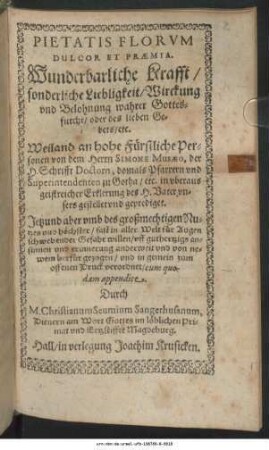 PIETATIS FLORVM
DULCOR ET PRÆMIA.
Wunderbarliche Krafft /
sonderliche Liebligkeit / Wirckung
vnd Belohnung wahrer Gottes-
furcht / oder des lieben Ge-
bets / etc.
Weiland an hohe Fürstliche Per-
sonen von dem Herrn SIMONE MUSÆO, der
H. Schrifft Doctorn, domals Pfarrern vnd
Superintendenten zu Gotha / etc. in vberaus
geistreicher Erklerung des H. Vater vn-
sers gestellet vnd geprediget.
Jetzund aber vmb des großmechtigen Nu-
tzes vnd höchster / fast in aller Welt für Augen
schwebender Gefahr willen /
vnd erinnerung anderweit vnd von newem
herfür gezogen / vnd in gemein zum
offenen Druck verordnet / cum quo-
dam appendice.
Durch
M. Christianum Sangerhusanum,
Dienern am Wort Gottes im löblichen Pri-
mat vnd Ertzstifft Magdeburg.
Hall / in verlegung Joachim Krusicken.